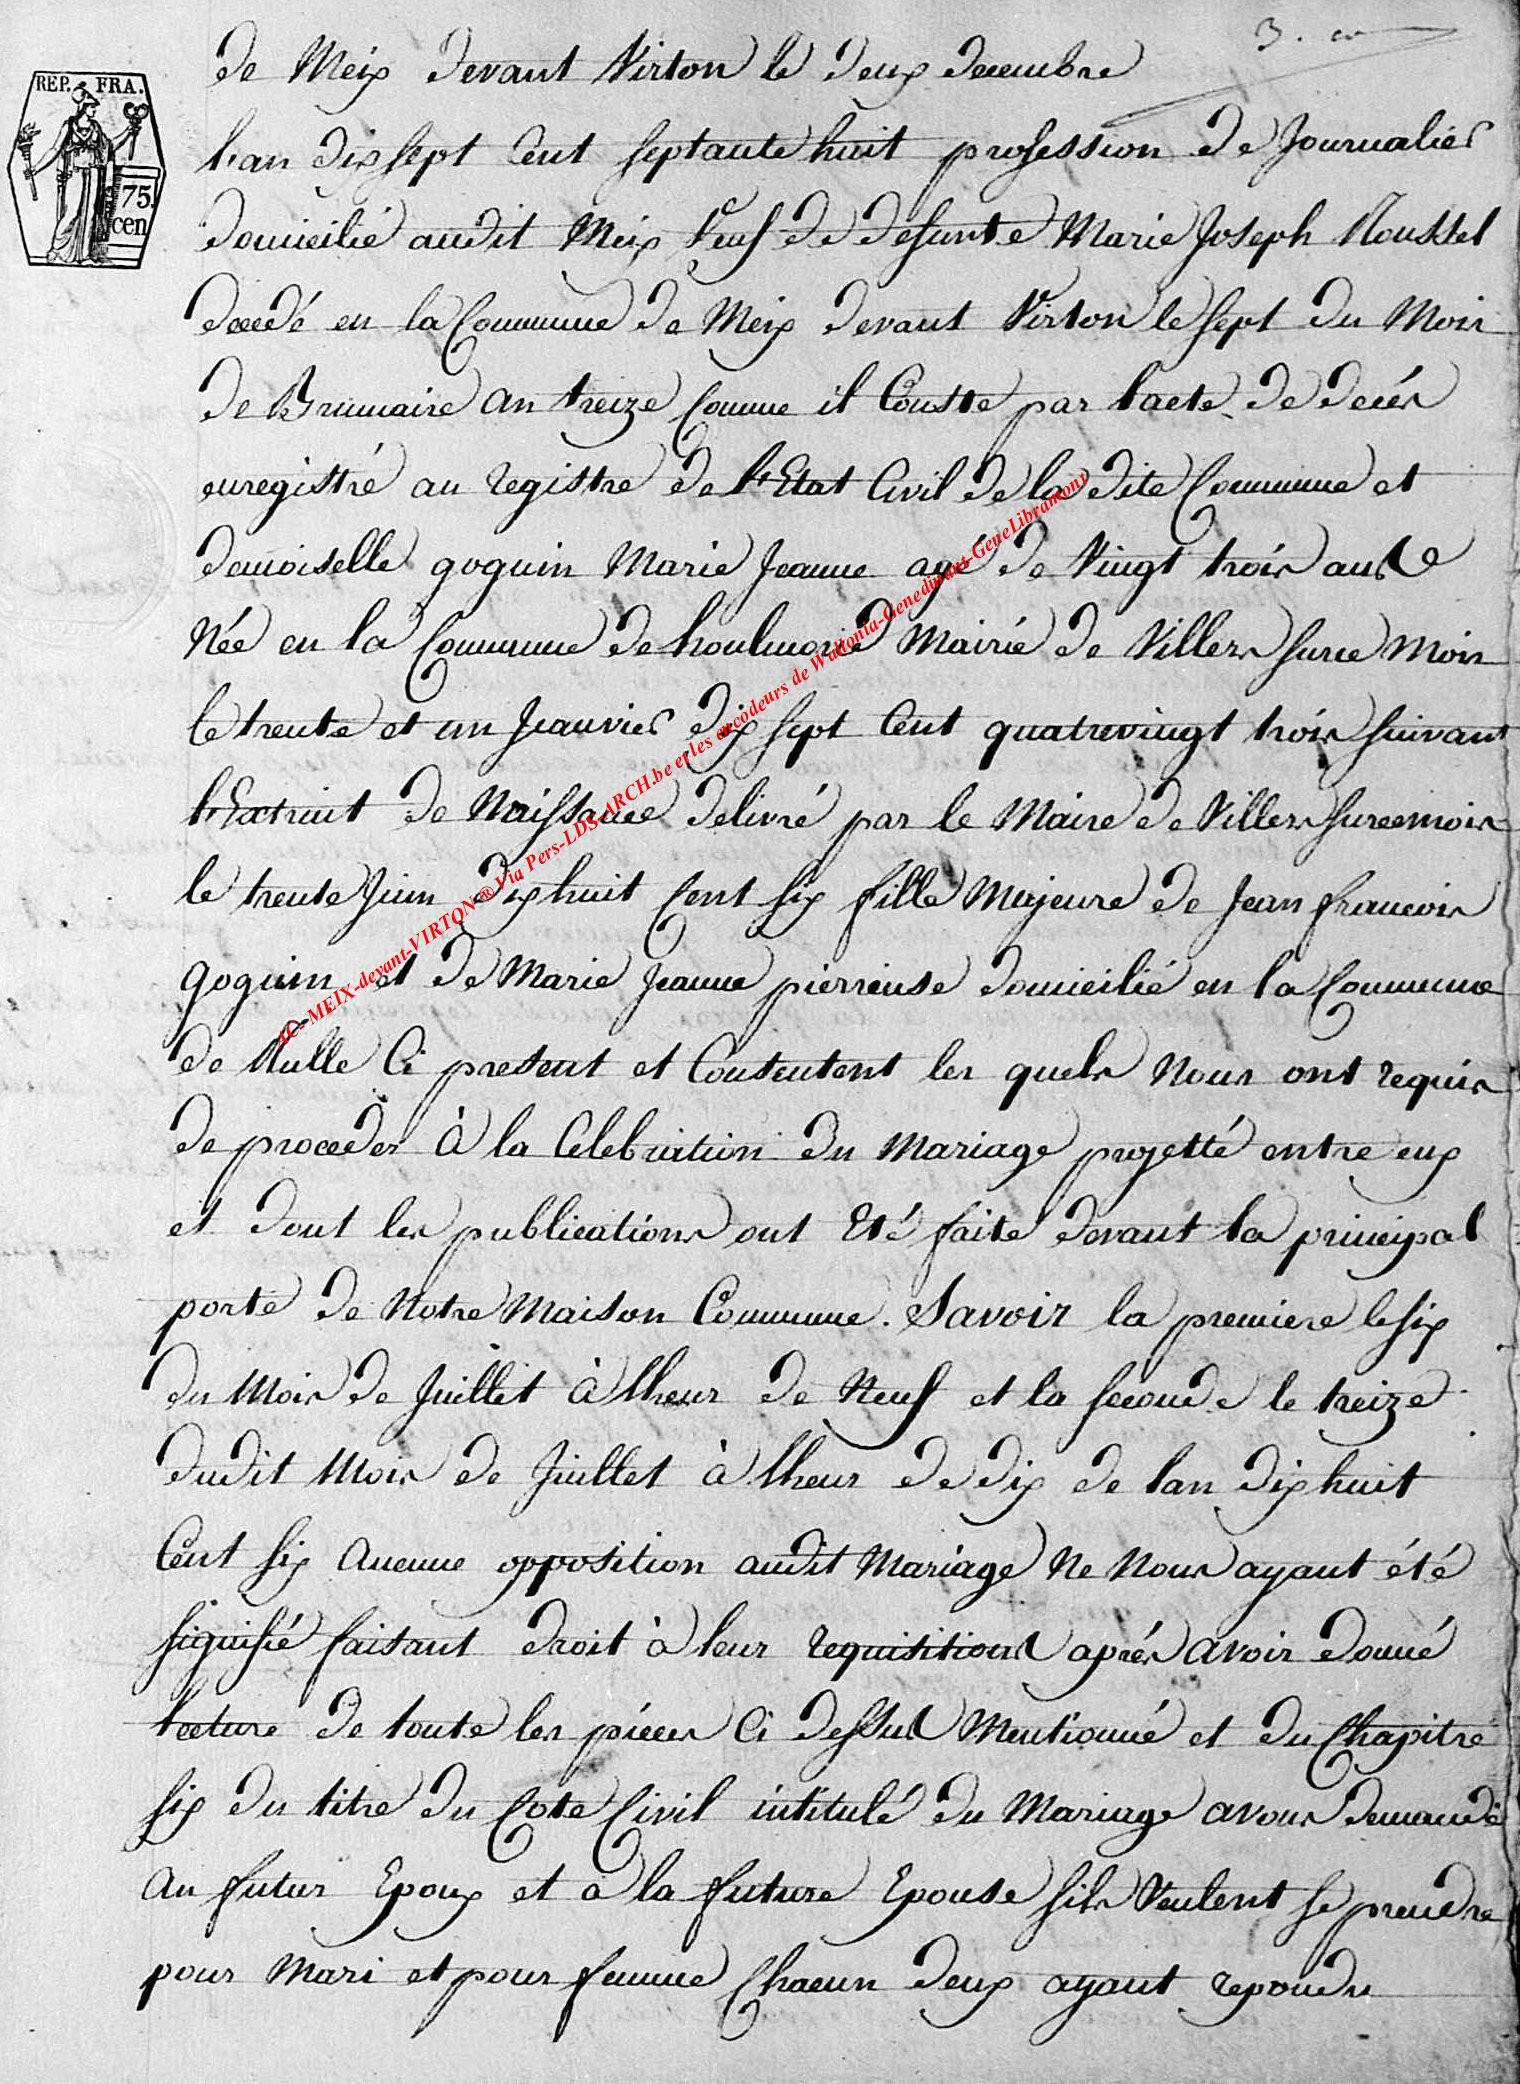 3.
REP. FRA.
75.
cen
de Meix devant Virton le deux decembre
l'an dix sept Cent septante huit profession de Journalier
domicilié audit Meix Veuf de defunte Marie Joseph Roussel
decedé en la Commune de Meix devant Virton le sept du Mois
de Brumaire an treize Comme il Conste par lacte de decés
enregistré au registre de l'Etat Civil de la dite Commune et
demoiselle goguin Marie Jeanne agé de Vingt trois ans
Née en la Commune de houlmont Mairie de Villers surce Mois
le trente et un Jeanvier dix sept Cent quatrevingt trois suivant
l'Extrait de Naissance delivré par le Maire de Villers surcemois
le trente Juin dix huit Cent six fille Majeure de Jean francois
goguin et de Marie Jeanne pierreuse domicilié en la Commune
de Rulle Ci present et Consentent les quels Nous ont requis
de proceder à la Celebration du Mariage projetté entre eux
et dont les publications ont Eté faite devant la principal
porte de Notre Maison Commune. Savoir la premiere le six
du Mois de Juillet à lheur de Neuf et la seconde le treize
dudit Mois de Juillet à lheur de dix de lan dix huit
Cent six Aucune opposition audit Mariage Ne Nous ayant été
signifié faisant droit à leur requisitions aprés avoir donné
lecture de toute les piéces Ci dessus Mentionné et du Chapitre
six du titre du Cote Civil intitulé du Mariage avons demandé
au futur Epoux et à la future Epouse sils Veulent se prendre
pour Mari et pour femme Chacun deux ayant repondu
AC- MEIX-devant-VIRTON ® Via Pers-LDS-ARCH.be et les encodeurs de Wallonia-Genedinant-GeneLibramont